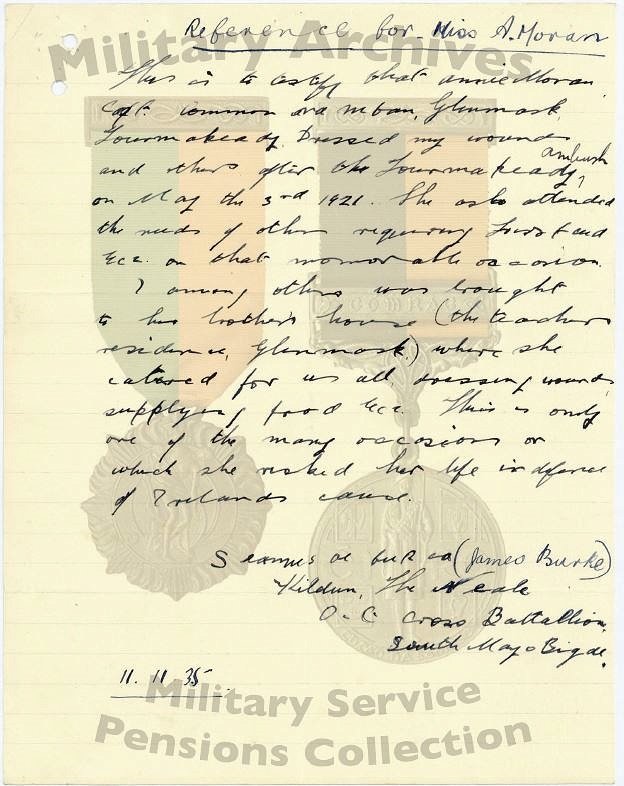 Reference for Miss A. Moran
Military Archives
This is to testify that Annie Moran
Capt. Common na mban, Glenmask,
Tourmakeady, Dressed my wounds
and others after the Tourmakeady ambush,
on May the 3rd 1921. She also attended
the needs of others requiring First aid
&cc. on that memorable occasion.
I among others was brought
to her brother's house (the teachers
residence, Glenmask.) where she
catered for us all, dressing wounds,
supplying food &cc. This is only
one of the many occasions on
which she risked her life in defence
of Irelands cause.
Seamus de burca (James Burke)
Kildun, The Neale
O-C Cross Battallion,
South Mayo Bigde.
11. 11 35
Military Service
Pensions Collection